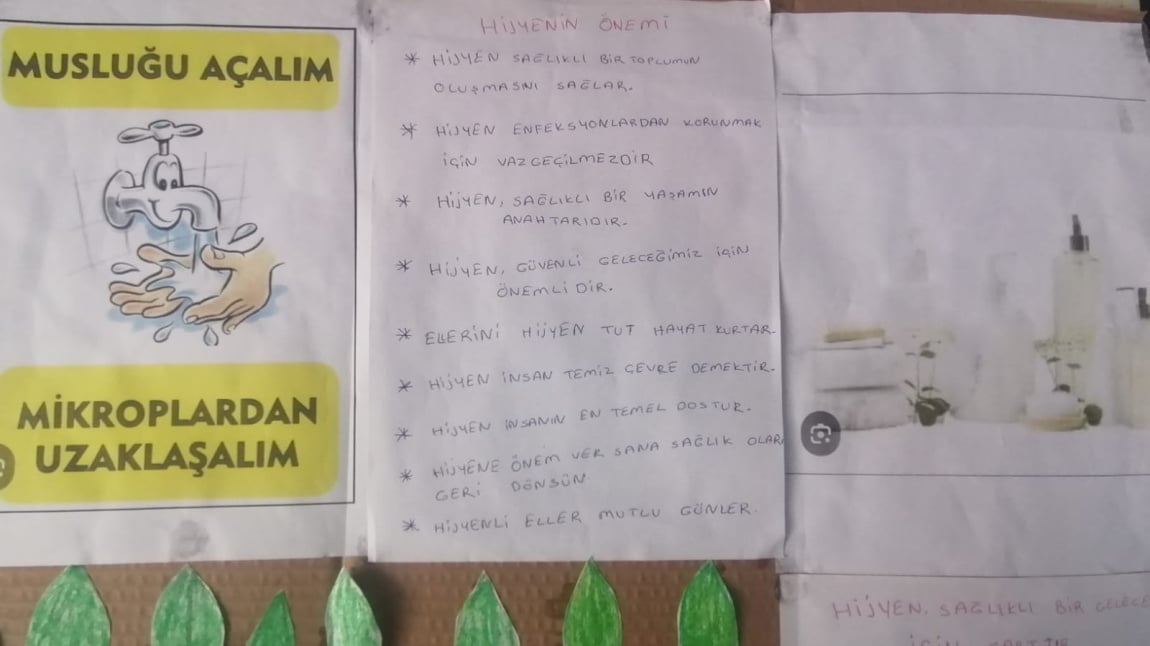 MUSLUĞU AÇALIM
MİKROPLARDAN
UZAKLAŞALIM
HİJYENİN ÖNEMİ
* HİJYEN SAĞLIKLI BİR TOPLUMUN
OLUŞMASINI SAĞLAR.
* HİJYEN ENFEKSYONLARDAN KORUNMAK
İÇİN VAZGEÇİLMEZDİR
* HİJYEN, SAĞLIKLI BİR YAŞAMIN
ANAHTARIDIR.
* HİJYEN, GÜVENLİ GELECEĞİMİZ İÇİN
ÖNEMLİDİR.
* ELLERİNİ HİJYEN TUT HAYAT KURTAR.
* HİJYEN İNSAN TEMİZ ÇEVRE DEMEKTİR.
* HİJYEN İNSANIN EN TEMEL DOSTUR.
* HİJYENE ÖNEM VER SANA SAĞLIK OLARI
GERİ DÖNSÜN.
* HİJYENLİ ELLER MUTLU GÜNLER.
HİJYEN, SAĞLIKLI BİR GELECE
İÇİN